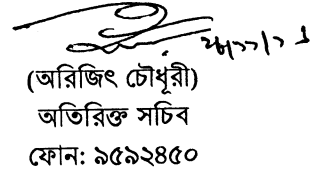 (অরিজিৎ চৌধূরী)
অতিরিক্ত সচিব
ফোন: ৯৫৯২৪৫০